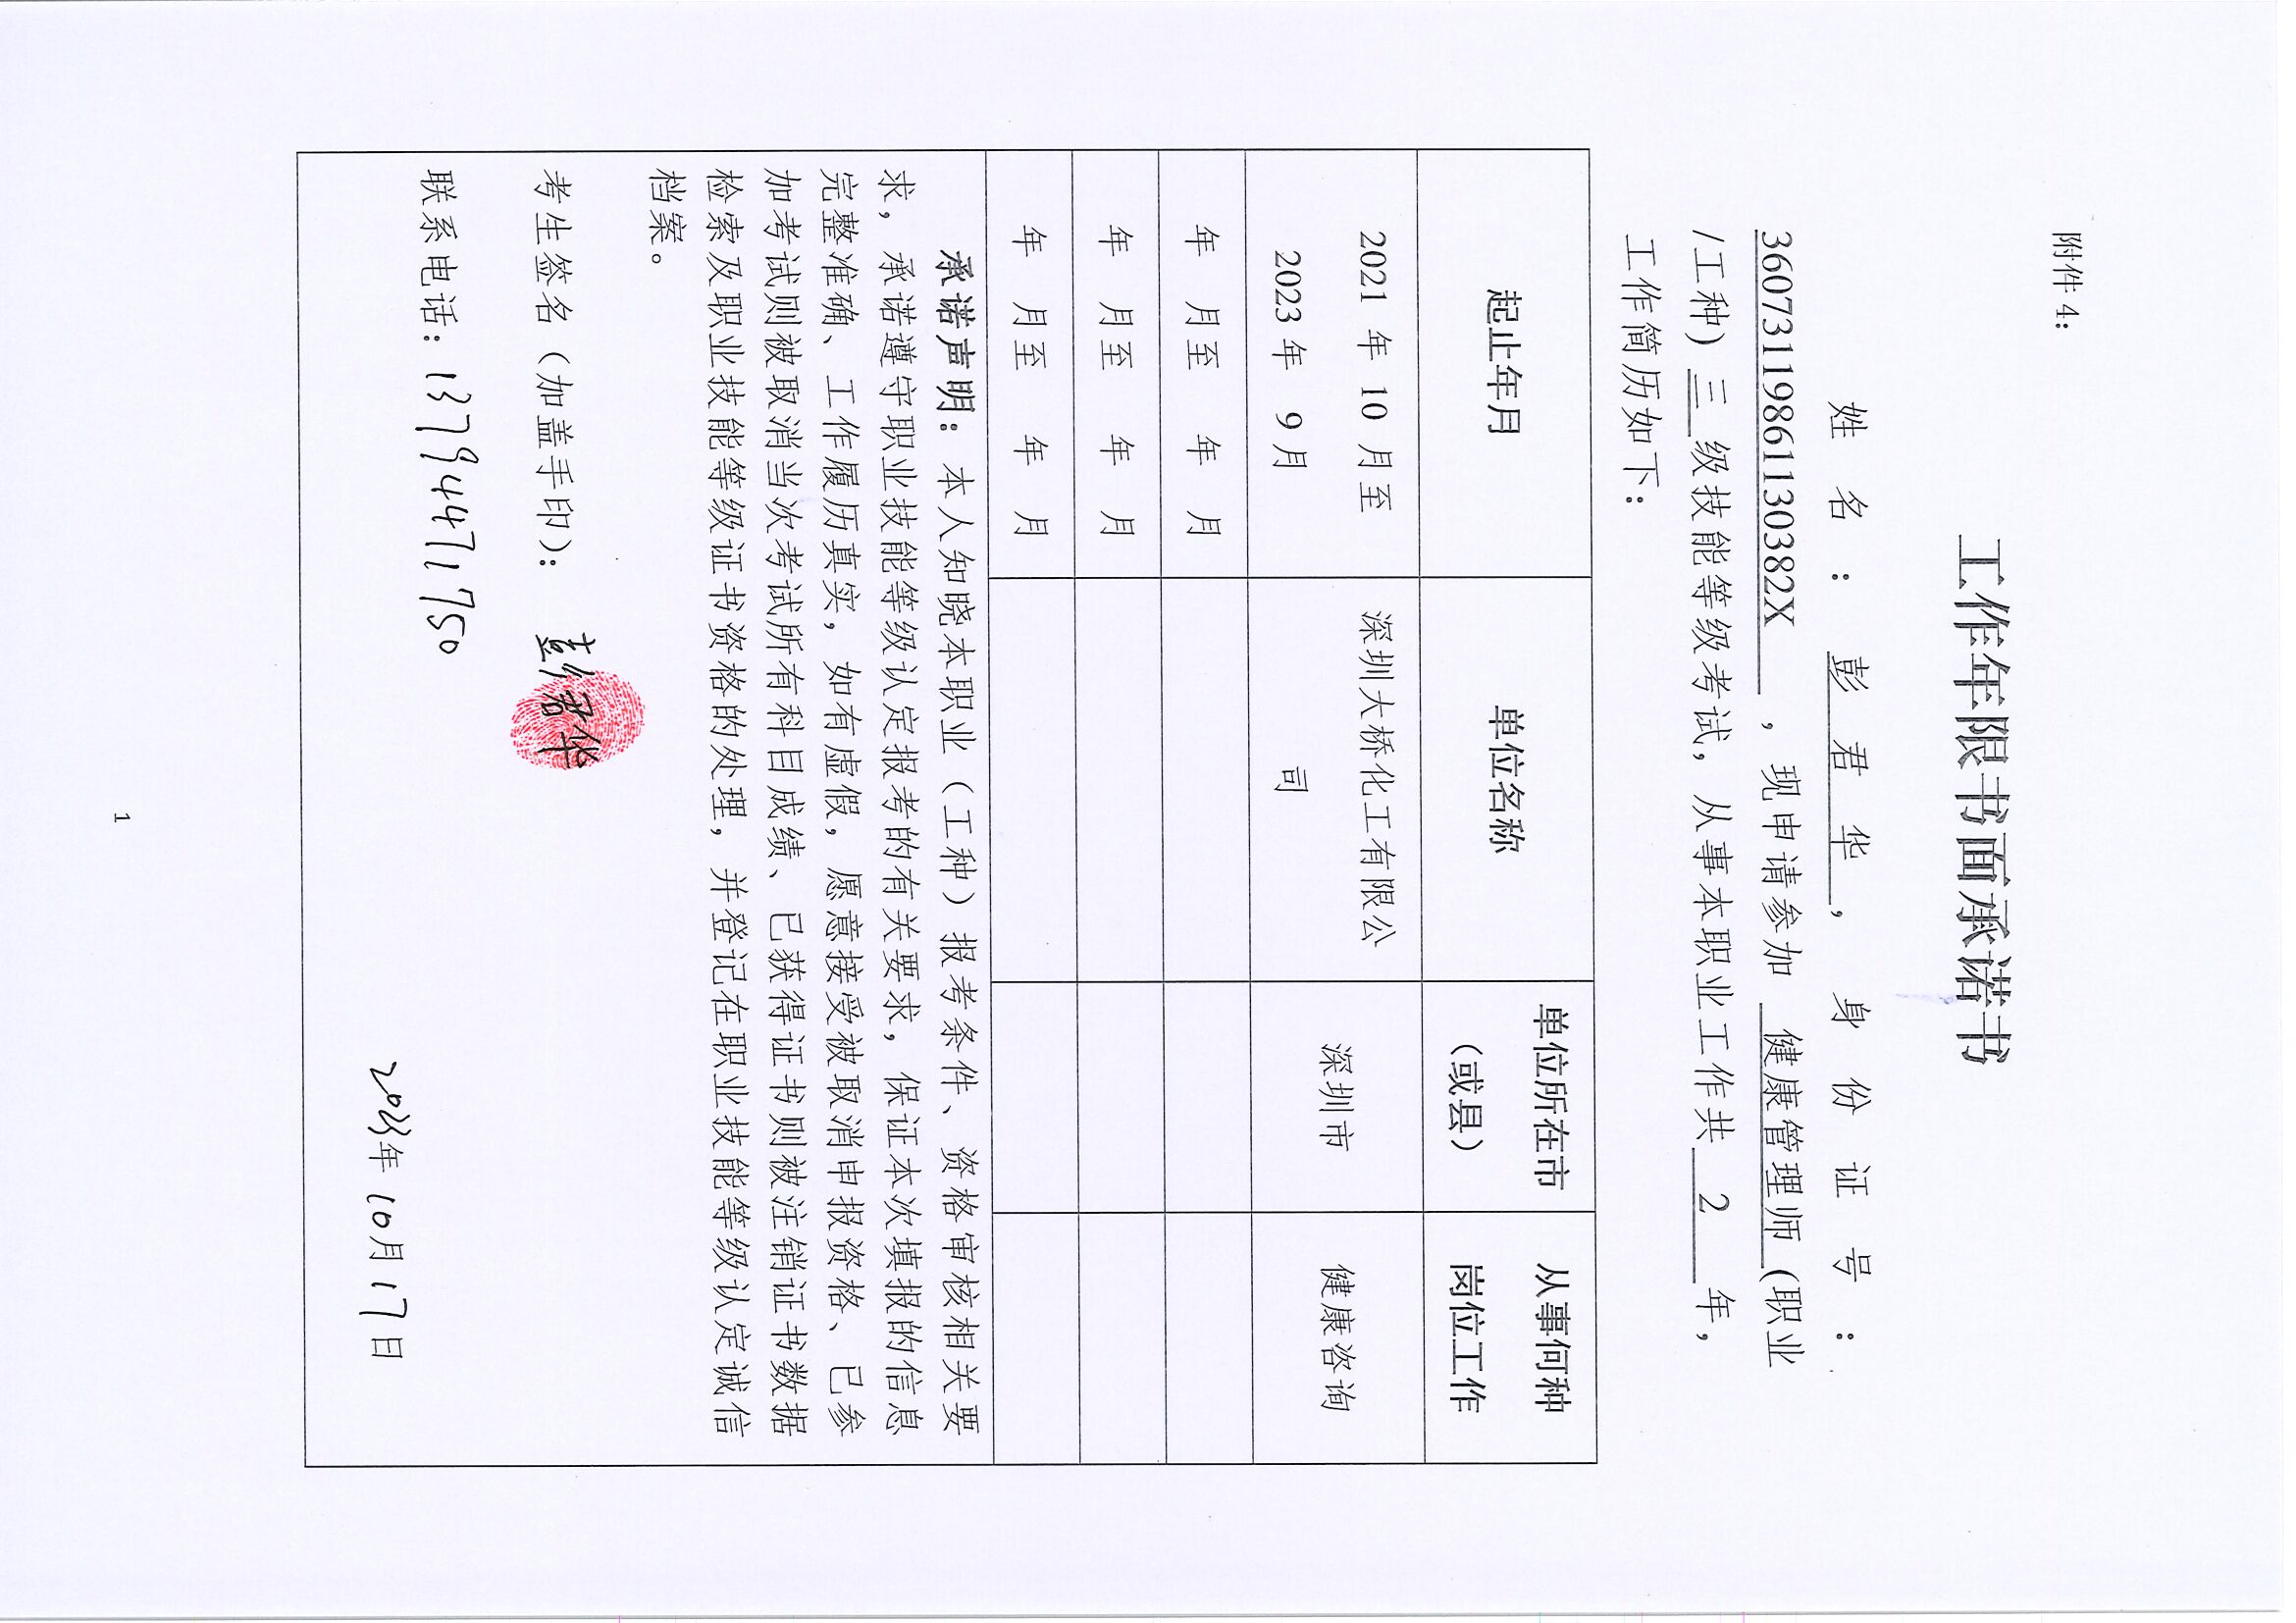 附件 4:
工作年限书面承诺书
姓名：彭君华，身份证号：
360731198611303​82X，现申请参加 健康管理师 (职业
/工种) 三 级技能等级考试，从事本职业工作共 2 年，
工作简历如下：
起止年月 单位名称 单位所在市（或县） 从事何种岗位工作
2021 年 10 月至 2023 年 9 月 深圳大桥化工有限公司 深圳市 健康咨询
年 月至 年 月
年 月至 年 月
年 月至 年 月
承诺声明：本人知晓本职业（工种）报考条件、资格审核相关要
求，承诺遵守职业技能等级认定报考的有关要求，保证本次填报的信息
完整准确、工作履历真实，如有虚假，愿意接受被取消申报资格、已参
加考试则被取消当次考试所有科目成绩、已获得证书则被注销证书数据
检索及职业技能等级证书资格的处理，并登记在职业技能等级认定诚信
档案。
考生签名（加盖手印）： 彭君华
联系电话：13794471750
2023年10月17日
1